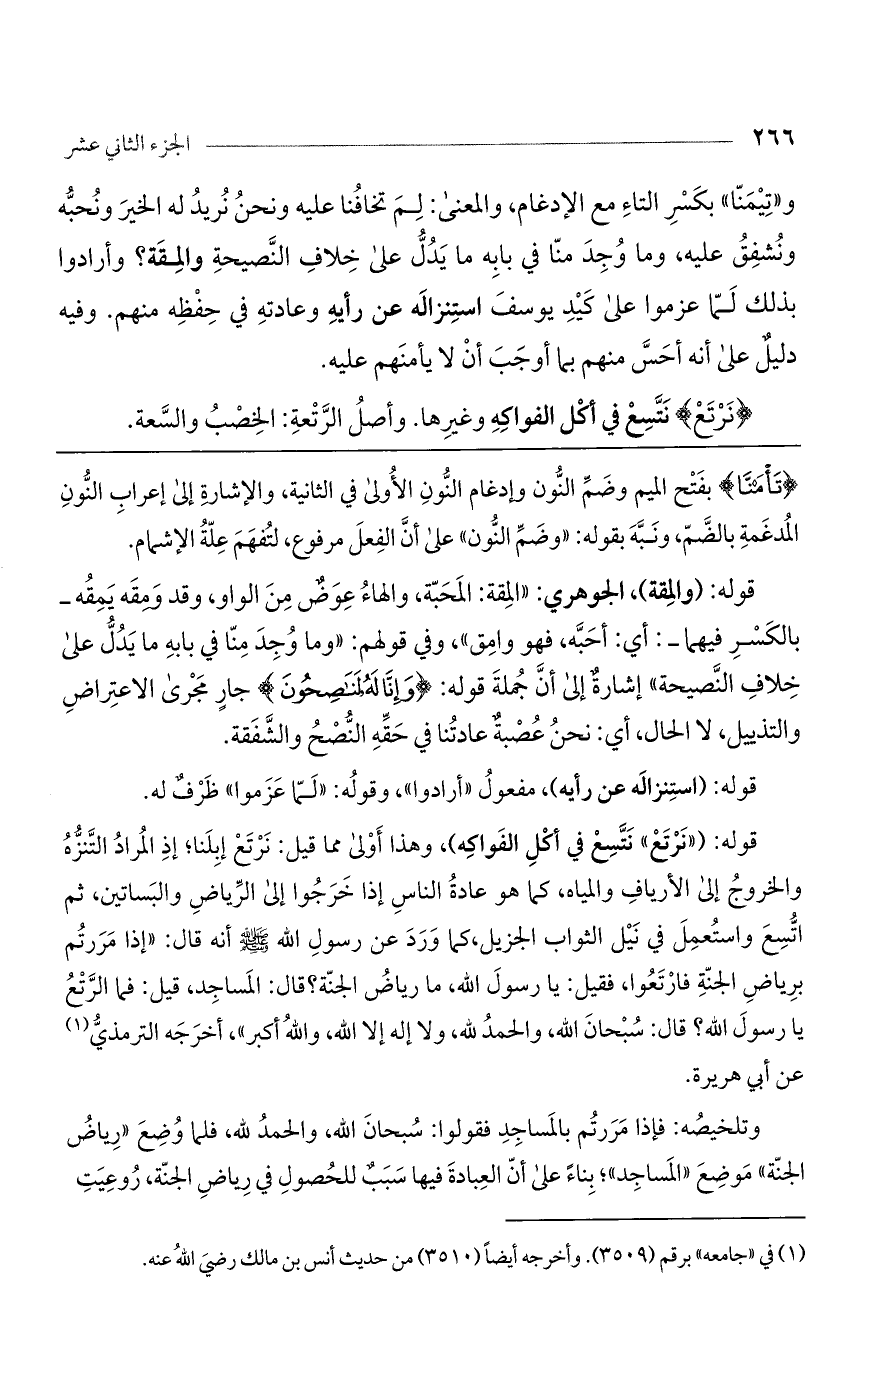 ٢٦٦ الجزء الثاني عشر
و«تِيْمَنّا» بكَسْرِ التاءِ مع الإدغام، والمعنىٰ: لِـمَ تخافُنا عليه ونحنُ نُريدُ له الخيرَ ونُحبُّه
ونُشفِقُ عليه، وما وُجِدَ منّا في بابِه ما يَدُلُّ علىٰ خِلافِ النَّصيحةِ والمِـقَة؟ وأرادوا
بذلك لَـمّا عزموا علىٰ كَيْدِ يوسفَ استِنزالَه عن رأيِه وعادتهِ في حِفْظِه منهم. وفيه
دليلٌ علىٰ أنه أحَسَّ منهم بما أوجَبَ أنْ لا يأمنَهم عليه.
﴿نَرْتَعْ﴾ نَتَّسِعْ في أكْل الفواكِهِ وغيرِها. وأصلُ الرَّتْعةِ: الخِصْبُ والسَّعة.
﴿تَأْمَنَّا﴾ بفَتْح الميم وضَمِّ النُّون وإدغام النُّونِ الأُولىٰ في الثانية، والإشارةِ إلىٰ إعرابِ النُّونِ
المُدغَمةِ بالضَّمّ، ونَـبَّهَ بقوله: «وضَمِّ النُّون» علىٰ أنَّ الفِعلَ مرفوع، لتُفهَمَ عِلّةُ الإشمام.
قوله: (والمِقة)، الجوهري: «المِقة: المَحَبّة، والهاءُ عِوَضٌ مِنَ الواو، وقد وَمِقَه يَمِقُه ـ
بالكَسْـرِ فيهما ـ : أي: أحَبَّه، فهو وامِق»، وفي قولهم: «وما وُجِدَ مِنّا في بابهِ ما يَدُلُّ علىٰ
خِلافِ النَّصيحة» إشارةٌ إلىٰ أنَّ جُملةَ قوله: ﴿وَإِنَّا لَهُ لَنَاصِحُونَ﴾ جارٍ مَجْرىٰ الاعتِراضِ
والتذييل، لا الحال، أي: نحنُ عُصْبةٌ عادتُنا في حَقِّهِ النُّصْحُ والشَّفَقة.
قوله: (استِنزالَه عن رأيه)، مفعولُ «أرادوا»، وقولُه: «لَـمّا عَزَموا» ظَرْفٌ له.
قوله: («نَرْتَعْ» نَتَّسِعْ في أكْلِ الفَواكِه)، وهذا أَوْلىٰ مما قيل: نَرْتَعْ إبلَنا؛ إذِ المُرادُ التَّنزُّهُ
والخروجُ إلىٰ الأريافِ والمياه، كما هو عادةُ الناسِ إذا خَرَجُوا إلىٰ الرِّياضِ والبَساتين، ثم
اتُّسِعَ واستُعمِلَ في نَيْل الثواب الجزيل،كما وَرَدَ عن رسولِ الله ﷺ أنه قال: «إذا مَرَرتُم
برِياضِ الجنّةِ فارْتَعُوا، فقيل: يا رسولَ الله، ما رياضُ الجنّة؟قال: المَساجِد، قيل: فما الرَّتْعُ
يا رسولَ الله؟ قال: سُبْحانَ الله، والحمدُ لله، ولا إله إلا الله، واللهُ أكبر»، أخرَجَه الترمذيُّ(١)
عن أبي هريرة.
وتلخيصُه: فإذا مَرَرتُم بالمَساجِدِ فقولوا: سُبحانَ الله، والحمدُ لله، فلما وُضِعَ «رِياضُ
الجنّة» مَوضِعَ «المَساجِد»؛ بِناءً علىٰ أنّ العِبادةَ فيها سَبَبٌ للحُصولِ في رِياضِ الجنّة، رُوعِيَتِ
(١) في «جامعه» برقم (٣٥٠٩). وأخرجه أيضاً (٣٥١٠) من حديث أنس بن مالك رضيَ اللهُ عنه.